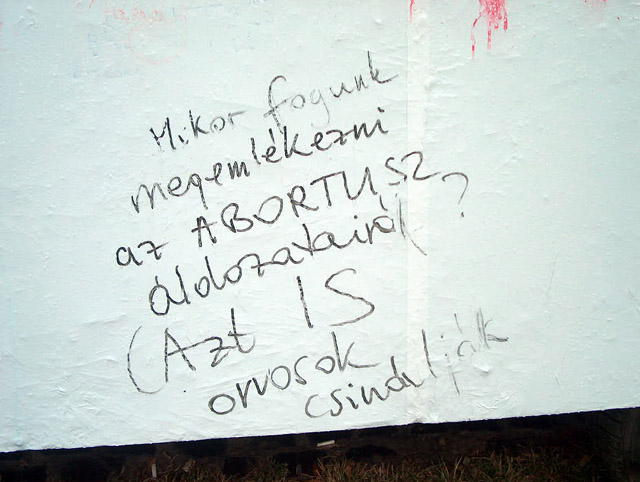 Mikor fogunk
megemlékezni
az ABORTUSZ
áldozatairól?
(Azt IS
orvosok
csinálják